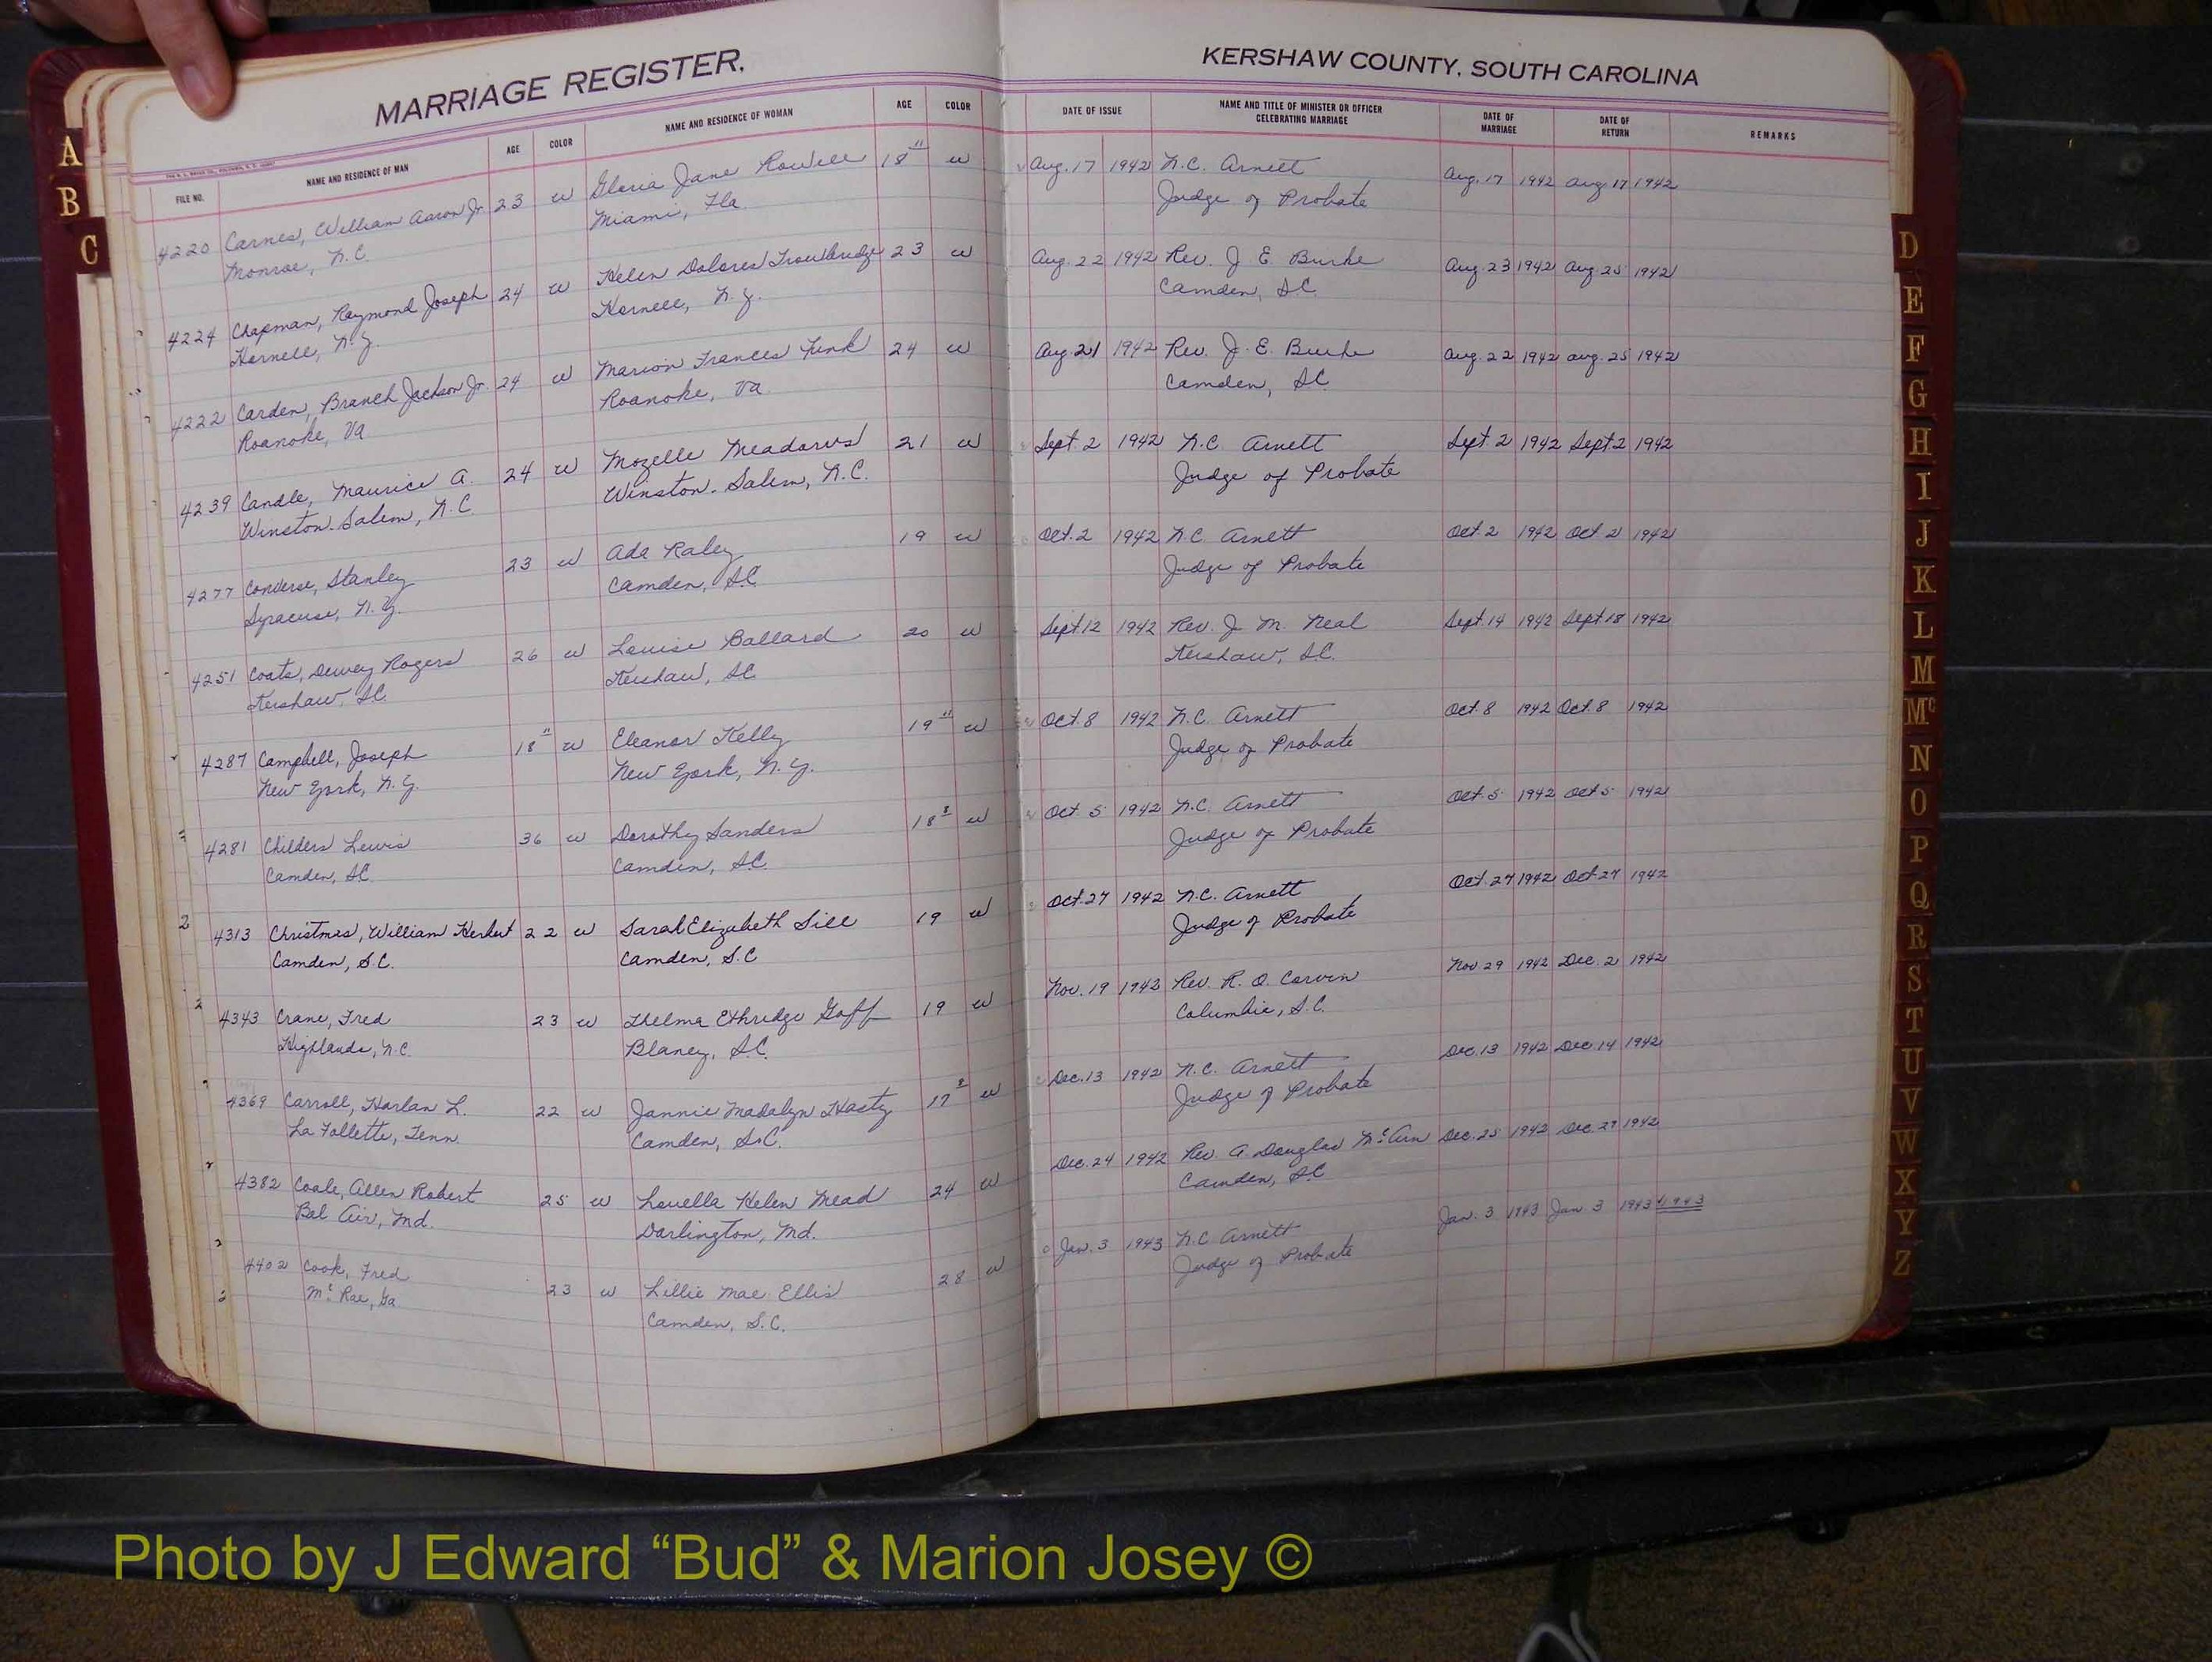 MARRIAGE REGISTER,
KERSHAW COUNTY, SOUTH CAROLINA
FILE NO. NAME AND RESIDENCE OF MAN AGE COLOR NAME AND RESIDENCE OF WOMAN AGE COLOR DATE OF ISSUE NAME AND TITLE OF MINISTER OR OFFICER CELEBRATING MARRIAGE DATE OF MARRIAGE DATE OF RETURN REMARKS
4220 Carnes, William Aaron Jr. 23 w Gloria Jane Rowell 18 11 w Aug. 17 1942 N.C. Arnett Aug. 17 1942 Aug 17 1942
Monroe, N.C. Miami, Fla Judge of Probate
4224 Chapman, Raymond Joseph 24 w Helen Dolores Trowbridge 23 w Aug. 22 1942 Rev. J E Burke Aug. 23 1942 Aug 25 1942
Hornell, N.Y. Hornell, N.Y. Camden, S.C.
4222 Carden, Branch Jackson Jr. 24 w Marion Frances Funk 24 w Aug 21 1942 Rev. J. E. Burke Aug. 22 1942 Aug. 25 1942
Roanoke, Va Roanoke, Va Camden, S.C.
4239 Candle, Maurice A. 24 w Mozelle Meadows 21 w Sept. 2 1942 N.C. Arnett Sept. 2 1942 Sept 2 1942
Winston-Salem, N.C. Winston-Salem, N.C. Judge of Probate
4277 Converse, Stanley 23 w Ada Raley 19 w Oct. 2 1942 N.C. Arnett Oct. 2 1942 Oct. 2 1942
Syracuse, N.Y. Camden, S.C. Judge of Probate
4251 Coats, Dewey Rogers 26 w Louise Ballard 20 w Sept. 12 1942 Rev. J M. Neal Sept. 14 1942 Sept 18 1942
Kershaw, S.C. Kershaw, S.C. Kershaw, S.C.
4287 Campbell, Joseph 18 11 w Eleanor Kelly 19 11 w Oct. 8 1942 N.C. Arnett Oct. 8 1942 Oct. 8 1942
New York, N.Y. New York, N.Y. Judge of Probate
4281 Childers Lewis 36 w Dorothy Sanders 18 w Oct 5 1942 N.C. Arnett Oct. 5 1942 Oct 5 1942
Camden, S.C. Camden, S.C. Judge of Probate
4313 Christmas, William Herbert 22 w Sarah Elizabeth Sill 19 w Oct. 27 1942 N.C. Arnett Oct. 27 1942 Oct. 27 1942
Camden, S.C. Camden, S.C Judge of Probate
4343 Crane, Fred 23 w Thelma Ethridge Goff 19 w Nov. 19 1942 Rev. R. O. Corvin Nov 29 1942 Dec. 2 1942
Highlands, N.C. Blaney, S.C. Columbia, S.C.
4369 Carroll, Harlan L. 22 w Jannie Madalyn Hasty 17 w Dec. 13 1942 N.C. Arnett Dec. 13 1942 Dec. 14 1942
La Follette, Tenn Camden, S.C. Judge of Probate
4382 Coale, Allen Robert 25 w Louella Helen Mead 24 w Dec. 24 1942 Rev. A. Douglas McArn Dec. 25 1942 Dec. 27 1942
Bel Air, Md. Darlington, Md. Camden, S.C
4402 Cook, Fred 23 w Lillie Mae Ellis 28 w Jan. 3 1943 N.C. Arnett Jan. 3 1943 Jan. 3 1943 1943
McRae, Ga Camden, S.C. Judge of Probate
A
B
C
D
E
F
G
H
I
J
K
L
M
Mc
N
O
P
Q
R
S
T
U
V
W
X
Y
Z
Photo by J Edward “Bud” & Marion Josey ©